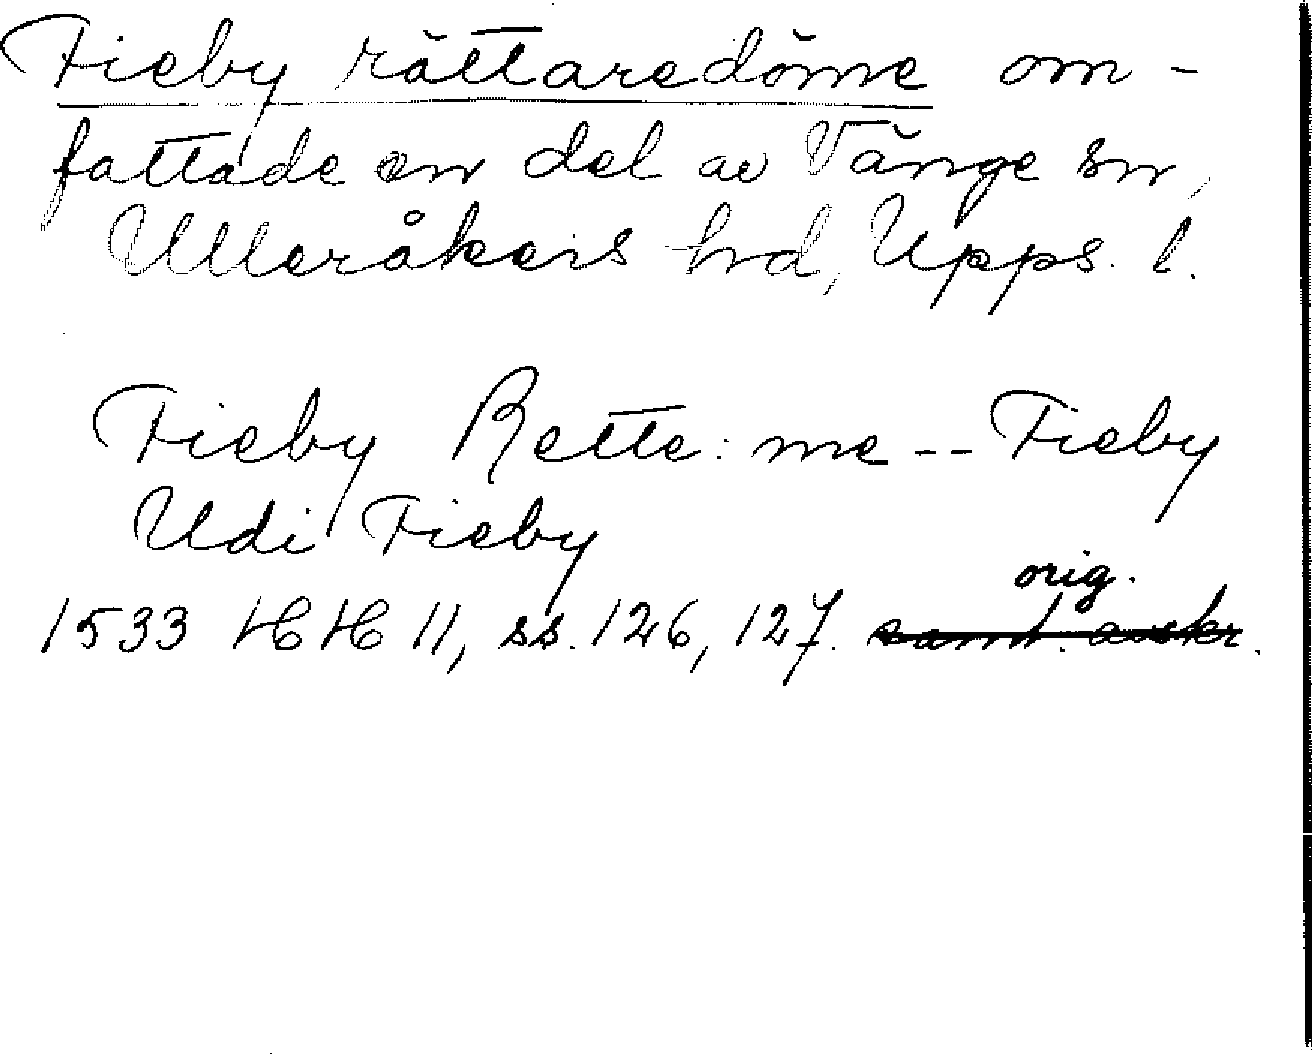 Fieby rättaredöme om-
fattade en del av Vänge sn,
Ulleråkers hd, Upps. l.
Fieby Rette: me -- Fieby
Udi Fieby
orig.
1533 HH 11, ss. 126, 127. samt. avskr.